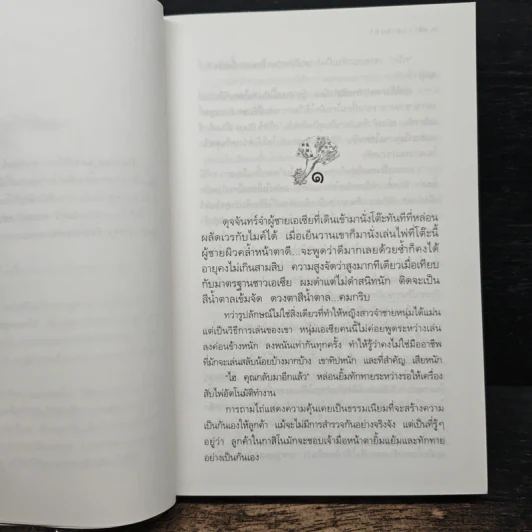 ๑
ดุจจันทร์จำผู้ชายเอเชียที่เดินเข้ามานั่งโต๊ะทันทีที่หล่อน
ผลัดเวรกับไมค์ได้ เมื่อเย็นวานเขาก็มานั่งเล่นไพ่ที่โต๊ะนี้
ผู้ชายผิวคล้ำหน้าตาดี...จะพูดว่าดีมากเลยด้วยซ้ำก็คงได้
อายุคงไม่เกินสามสิบ ความสูงจัดว่าสูงมากทีเดียวเมื่อเทียบ
กับมาตรฐานชาวเอเชีย ผมดำแต่ไม่ดำสนิทนัก ติดจะเป็น
สีน้ำตาลเข้มจัด ดวงตาสีน้ำตาล...คมกริบ
ทว่ารูปลักษณ์ไม่ใช่สิ่งเดียวที่ทำให้หญิงสาวจำชายหนุ่มได้แม่น
แต่เป็นวิธีการเล่นของเขา หนุ่มเอเชียคนนี้ไม่ค่อยพูดระหว่างเล่น
ลงค่อนข้างหนัก ลงพนันเท่ากันทุกครั้ง ทำให้รู้ว่าคงไม่ใช่มืออาชีพ
ที่มักจะเล่นสลับน้อยบ้างมากบ้าง เขาทิปหนัก และที่สำคัญ เสียหนัก
"ไฮ คุณกลับมาอีกแล้ว" หล่อนยิ้มทักทายระหว่างรอให้เครื่อง
สับไพ่อัตโนมัติทำงาน
การถามไถ่แสดงความคุ้นเคยเป็นธรรมเนียมที่จะสร้างความ
เป็นกันเองให้ลูกค้า แม้จะไม่มีการสำรวจกันอย่างจริงจัง แต่เป็นที่รู้ๆ
อยู่ว่า ลูกค้าในกาสิโนมักจะชอบเจ้ามือหน้าตายิ้มแย้มและทักทาย
อย่างเป็นกันเอง